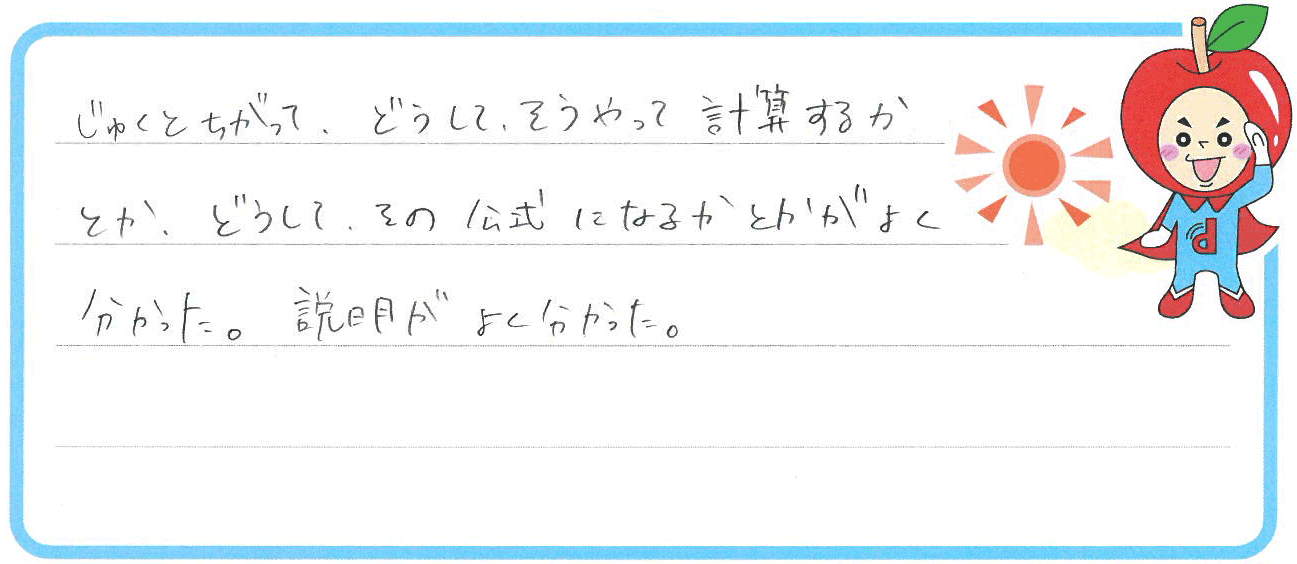 じゅくとちがって、どうして、そうやって計算するか
とか、どうして、その公式になるかとかがよく
分かった。説明がよく分かった。